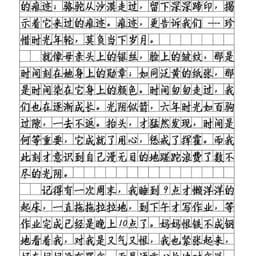 的痕迹，骆驼从沙漠走过，留下深深蹄印，揭
示着它来过的痕迹。痕迹，更告诉我们——珍
惜时光年轮，莫负当下岁月。
就像母亲头上的银丝，脸上的皱纹，那是
时间刻在她身上的勋章；如同泛黄的纸张，那是
时间染在它身上的颜色。时间匆匆走过，我
们也在逐渐成长。光阴似箭，六年时光如白驹
过隙，一去不返。抬头，才猛然发现，时间是
何等重要，它成就了用心，惩戒了挥霍。而我
此刻才意识到自己漫无目的地蹉跎浪费了数不
尽的光阴。
记得有一次周末，我睡到9点才懒洋洋的
起床，一直拖拖拉拉地，到下午才写作业，等
作业完成已经是晚上10点了。妈妈恨铁不成钢
地看着我，对我是又气又恨，我也紧张起来，